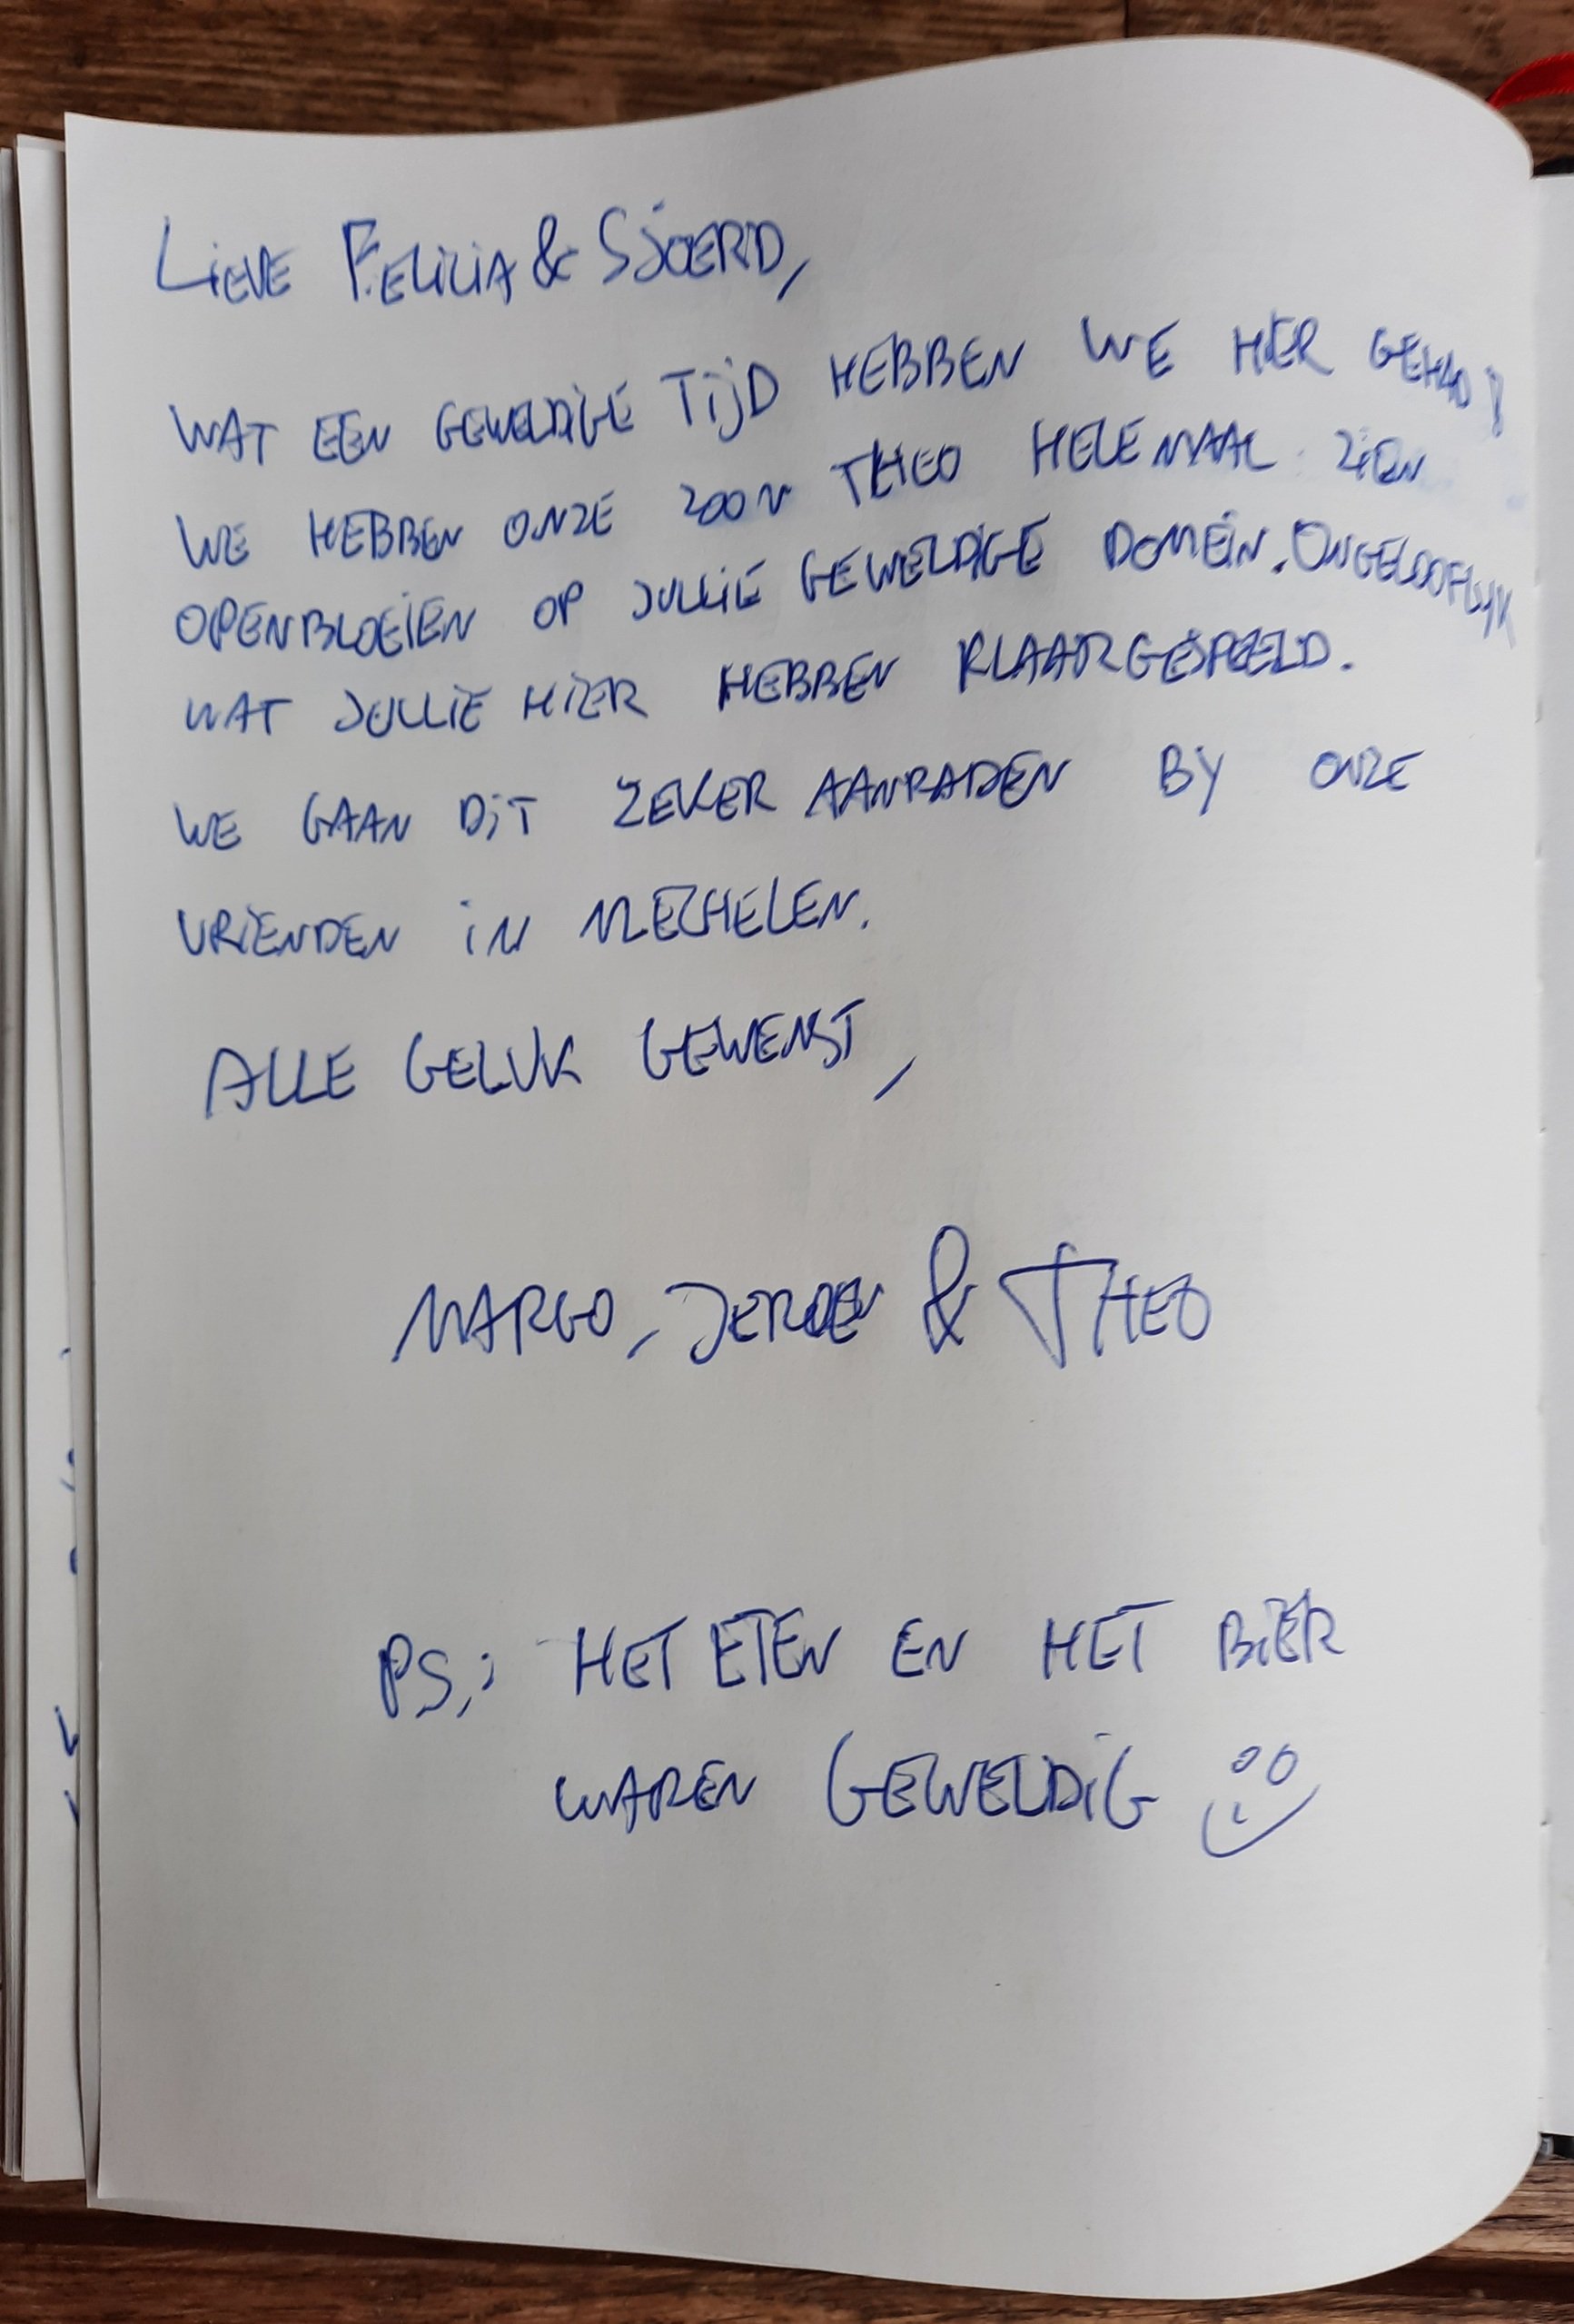 LIEVE FELICIA & SJOERD,
WAT EEN GEWELDIGE TIJD HEBBEN WE HIER GEHAD!
WE HEBBEN ONZE ZOON THEO HELEMAAL ZIEN
OPENBLOEIEN OP JULLIE GEWELDIGE DOMEIN. ONGELOOFLIJK
WAT JULLIE HIER HEBBEN KLAARGESPEELD.
WE GAAN DIT ZEKER AANRADEN BIJ ONZE
VRIENDEN IN MECHELEN.
ALLE GELUK GEWENST,
MARGO, JEROEN & THEO
PS.: HET ETEN EN HET BIER
WAREN GEWELDIG